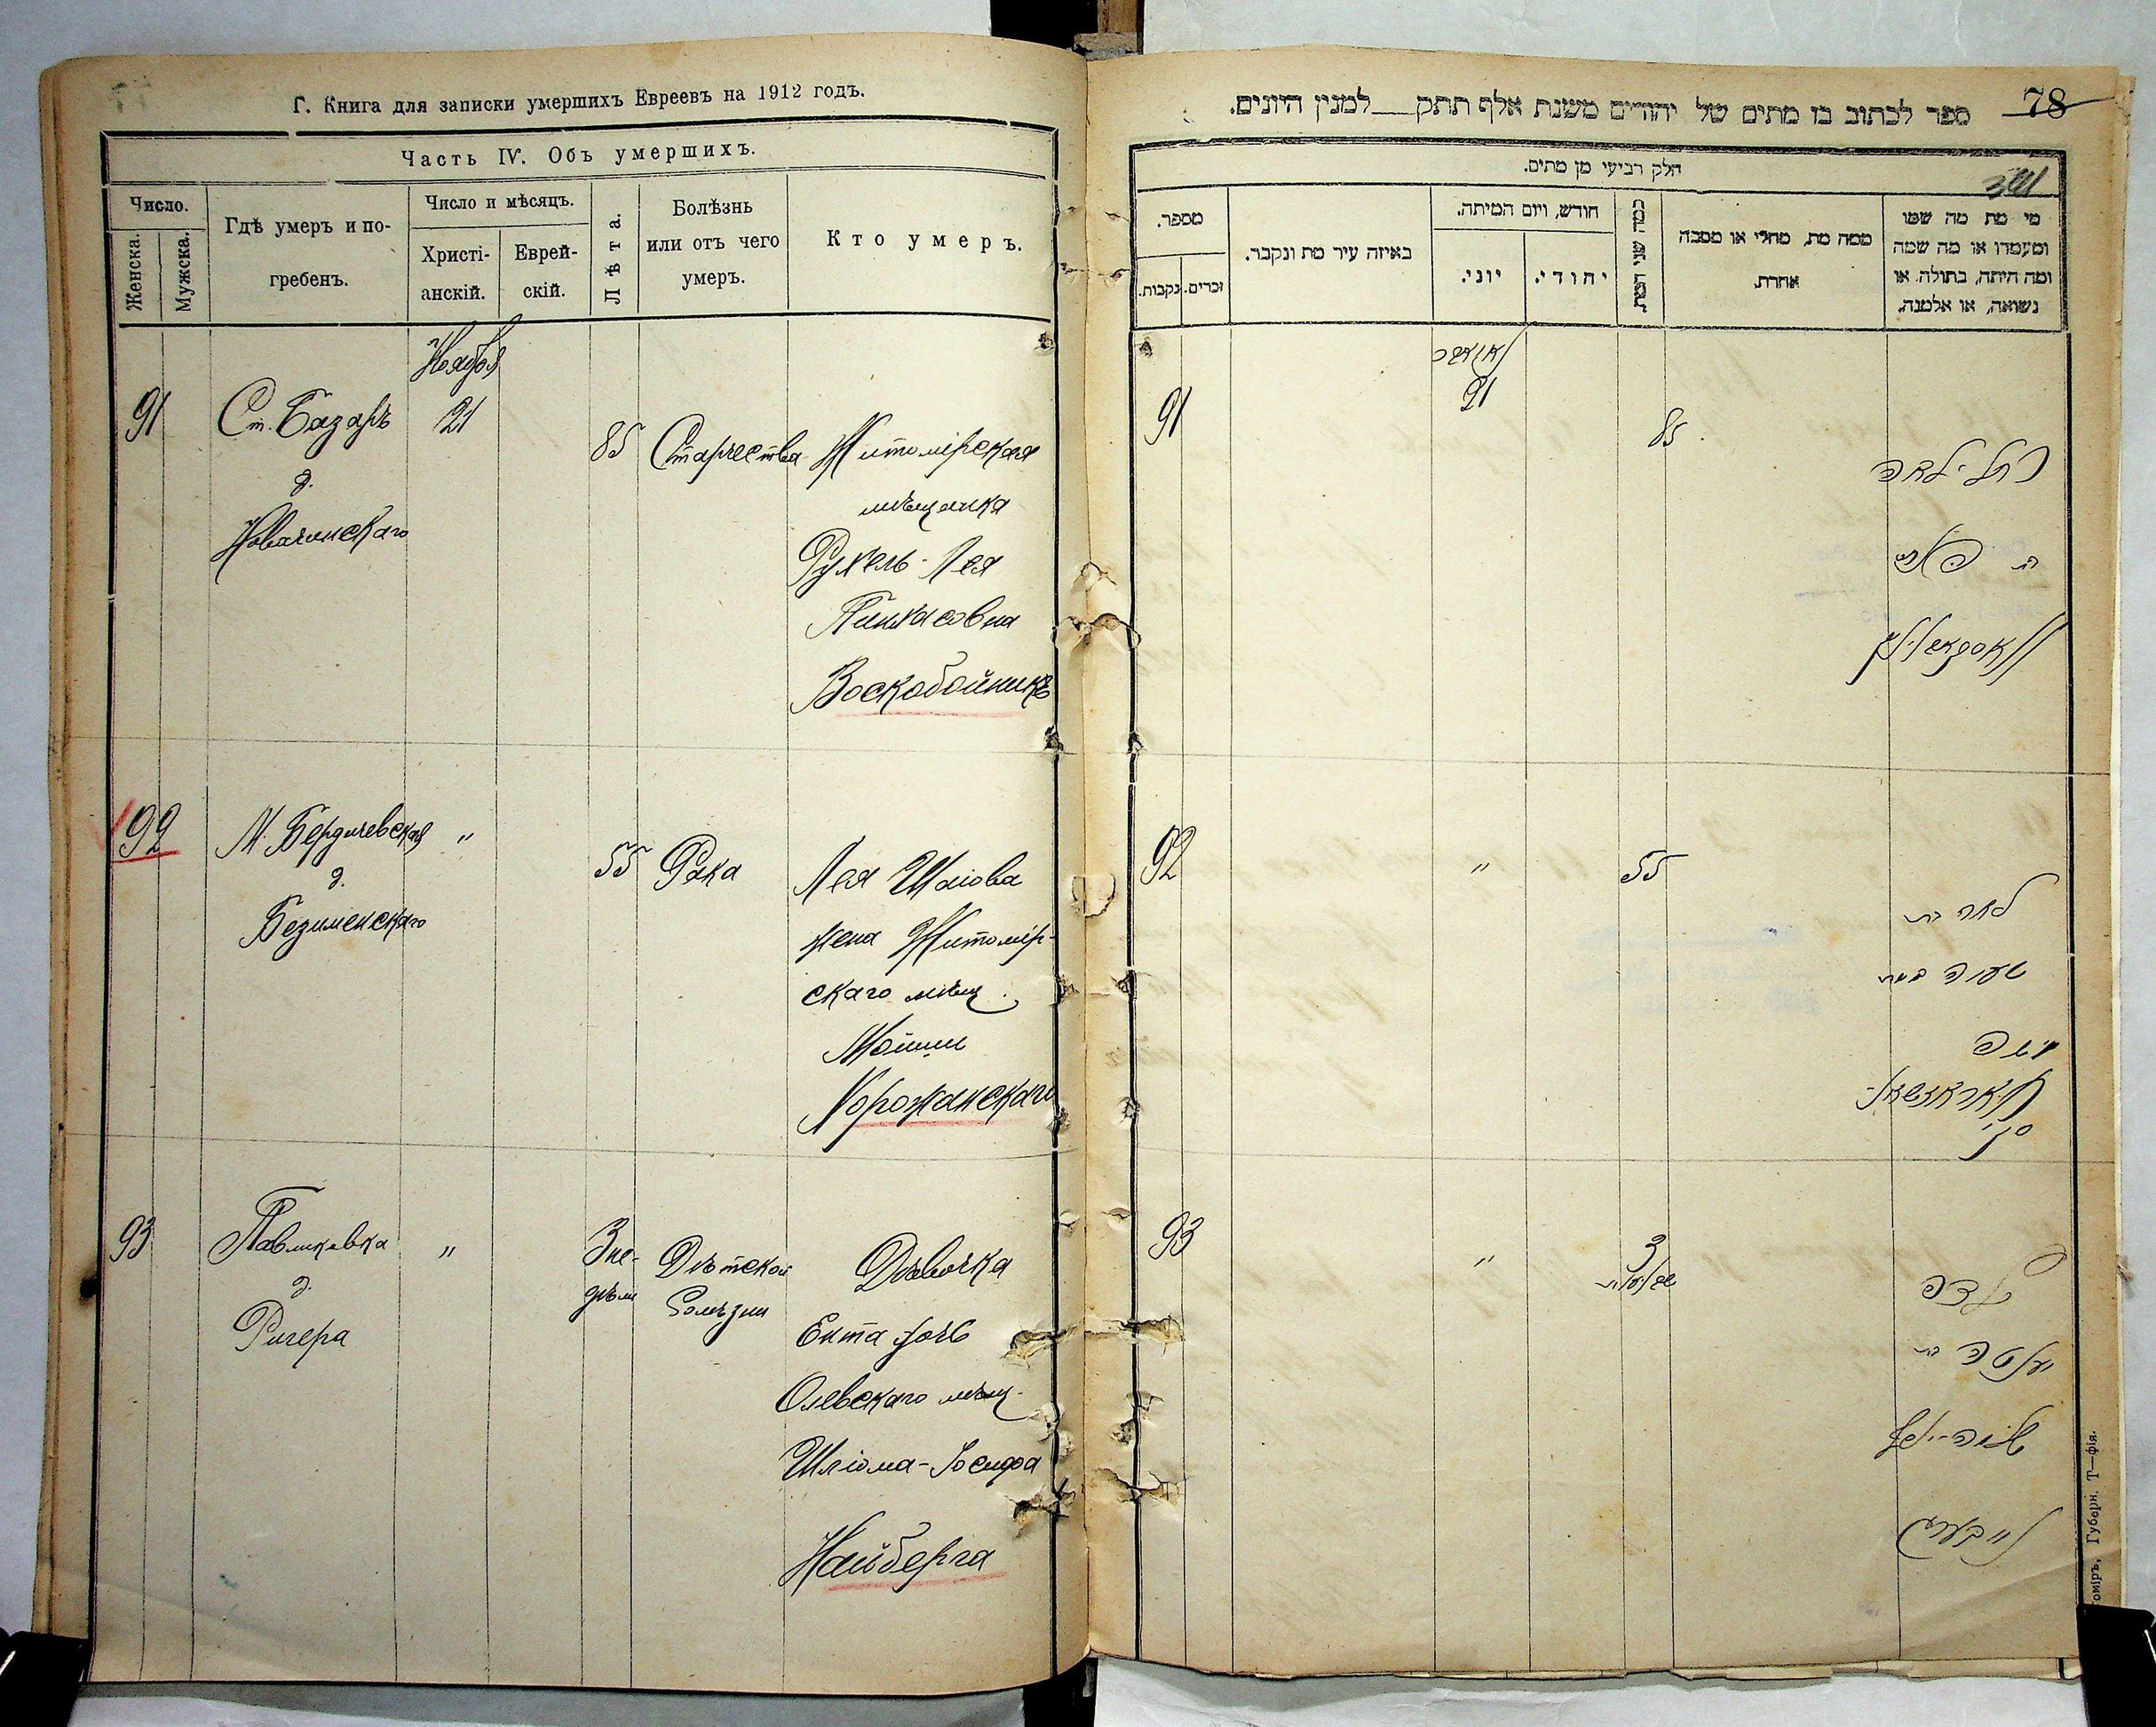 Г. Книга для записки умершихъ Евреевъ на 1912 годъ.
Часть IV. Объ умершихъ.
Число.
Женска.
Мужска.
Гдѣ умеръ и по-
гребенъ.
Число и мѣсяцъ.
Христі-
анскій.
Еврей-
скій.
Лѣта.
Болѣзнь
или отъ чего
умеръ.
Кто умеръ.
Ноября
91
Ст. Базаръ
д.
Новачинскаго
21
85
Старчества
Житомірская
мѣщанка
Рухель-Лея
Пинхасовна
Воскобойникъ
92
М. Бердичевская
д.
Безименскаго
"
55
Рака
Лея Шаіова
жена Житомір-
скаго мѣщ.
Мошки
Хорожанскаго
93
Павликовка
д.
Ригера
"
3 не-
дѣли
Дѣтской
болѣзни
Дѣвочка
Ента дочь
Олевскаго мѣщ.
Шліома-Іосифа
Найберга
78
ספר לכתוב בו מתים של יהודים משנת אלף תתק למנין היונים.
חלק רביעי מן מתים.
מספר.
נקבות.
זכרים.
באיזה עיר מת ונקבר.
חודש, ויום המיתה.
יוני.
יהודי.
כמה שני המת.
ממה מת, מחלי או מסבה
אחרת.
מי מת מה שמו
ומעמדו או מה שמה
ומה היתה, בתולה. או
נשואה, או אלמנה.
91
21
85
רחל לאה
בת פנחס
92
"
55
לאה בת
משה
93
"
3
ילדה
יענטה בת
שלמה-יוסף
נייבערג
Губерн. Т—фія.